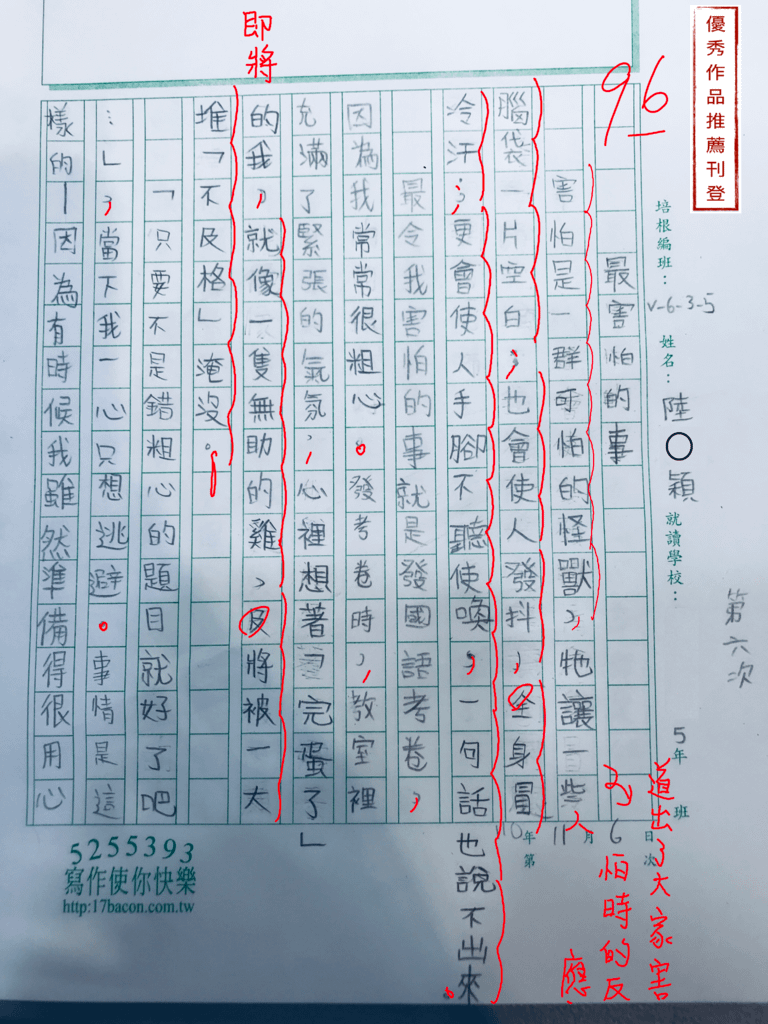 優秀作品推薦刊登
96
培根編班：V-6-3-5 姓名：陸○穎 就讀學校： 5年 班
第六次
110年 11月 6日 第 次
道出了大家害
怕時的反
應
最害怕的事
害怕是一群可怕的怪獸，牠讓一些人
腦袋一片空白；也會使人發抖，全身冒
冷汗；更會使人手腳不聽使喚，一句話也說不出來。
最令我害怕的事就是發國語考卷，
因為我常常很粗心。發考卷時，教室裡
充滿了緊張的氣氛，心裡想著「完蛋了」
即將
的我，就像一隻無助的雞，及將被一大
堆「不及格」淹沒。
「只要不是錯粗心的題目就好了吧
…」，當下我一心只想逃避。事情是這
樣的—因為有時候我雖然準備得很用心
5255393
寫作使你快樂
http:17bacon.com.tw